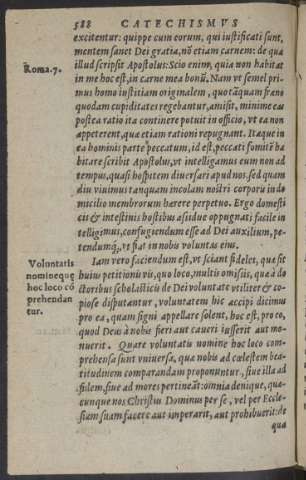 588 CATECHISMVS
excitentur: quippe cum eorum, qui iustificati sunt,
mentem sanet Dei gratia, nō etiam carnem: de qua
illud scripsit Apostolus: Scio enim, quia non habitat
Roma.7.
in me hoc est, in carne mea bonū. Nam vt semel pri-
mus homo iustitiam originalem, quo tāquam fræno
quodam cupiditates regebantur, amisit, minime eas
postea ratio ita continere potuit in officio, vt ea non
appeterent, quæ etiam rationi repugnant. Itaque in
ea hominis parte peccatum, id est, peccati fomitē ha
bitare scribit Apostolus, vt intelligamus eum non ad
tempus, quasi hospitem diuersari apud nos, sed quam
diu viuimus tanquam incolam nostri corporis in do
micilio membrorum hærere perpetuo. Ergo domesti
cis & intestinis hostibus assidue oppugnati facile in
telligimus, confugiendum esse ad Dei auxilium, pe-
tendumq́, vt fiat in nobis voluntas eius.
Voluntatis
nomine quę
hoc loco cō
prehendan
tur.
Iam vero faciendum est, vt sciant fideles, quæ sit
huius petitionis vis, quo loco, multis omissis, quæ à do
ctoribus scholasticis de Dei voluntate vtiliter & co-
piose disputantur, voluntatem hic accipi dicimus
pro ea, quam signi appellare solent, hoc est, pro eo,
quod Deus à nobis fieri aut caueri iusserit aut mo-
nuerit. Quare voluntatis nomine hoc loco com-
prehensa sunt vniuersa, quæ nobis ad cælestem bea-
titudinem comparandam proponuntur, siue illa ad
fidem, siue ad mores pertineāt: omnia denique, quæ-
cunque nos Christus Dominus per se, vel per Eccle-
siam suam facere aut imperarit, aut prohibuerit: de
qua